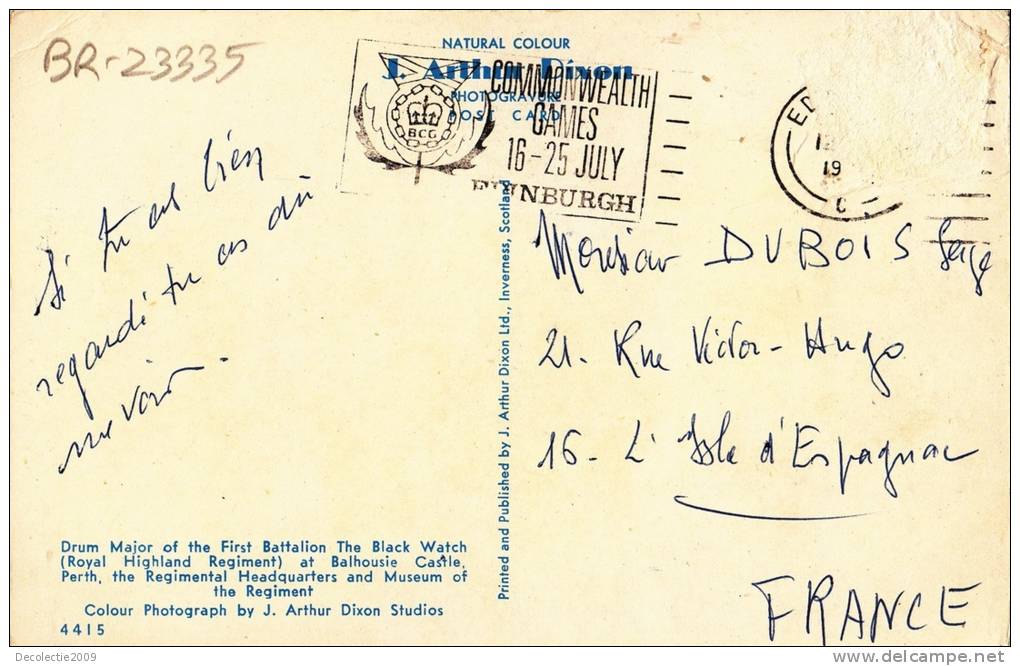 BR-23335
NATURAL COLOUR
J. Arthur Dixon
PHOTOGRAVURE
POST CARD
BCG
COMMONWEALTH
GAMES
16-25 JULY
EDINBURGH
ED
19
C
Si tu as bien
regardé tu as dû
me voir.
Monsieur DUBOIS Serge
21. Rue Victor-Hugo
16- L'Isle d'Espagnac
FRANCE
Printed and Published by J. Arthur Dixon Ltd., Inverness, Scotland
Drum Major of the First Battalion The Black Watch
(Royal Highland Regiment) at Balhousie Castle,
Perth, the Regimental Headquarters and Museum of
the Regiment
Colour Photograph by J. Arthur Dixon Studios
4415
Decolectie2009
http://www.delcampe.net